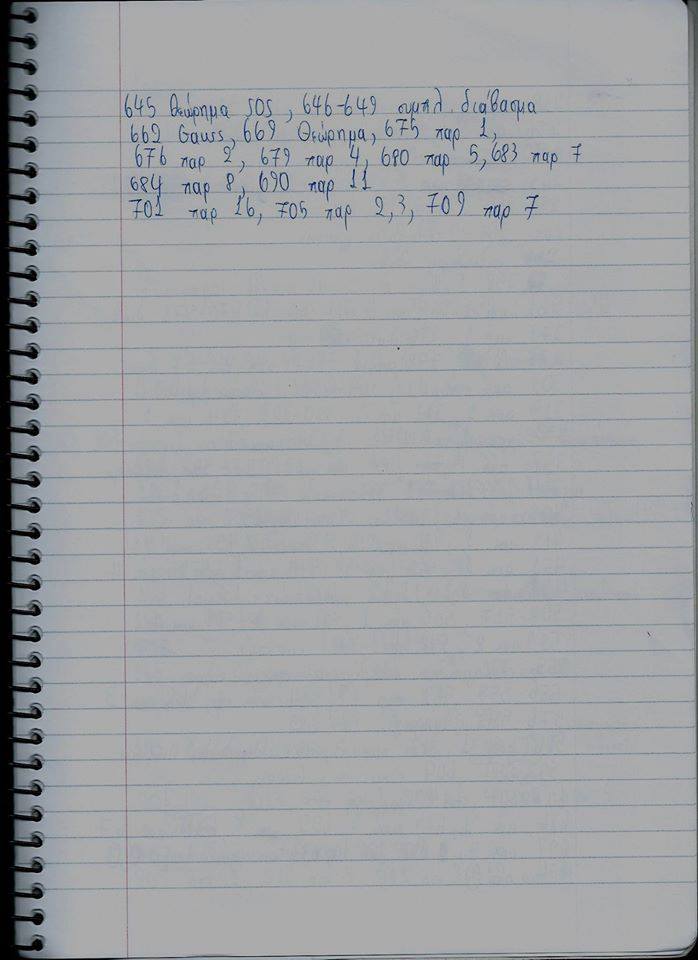 645 Θεώρημα SOS, 646-649 συμπλ. διάβασμα
662 Gauss, 669 Θεώρημα, 675 παρ 1,
676 παρ 2, 679 παρ 4, 680 παρ 5, 683 παρ 7
684 παρ 8, 690 παρ 11
701 παρ 16, 705 παρ 2,3, 709 παρ 7